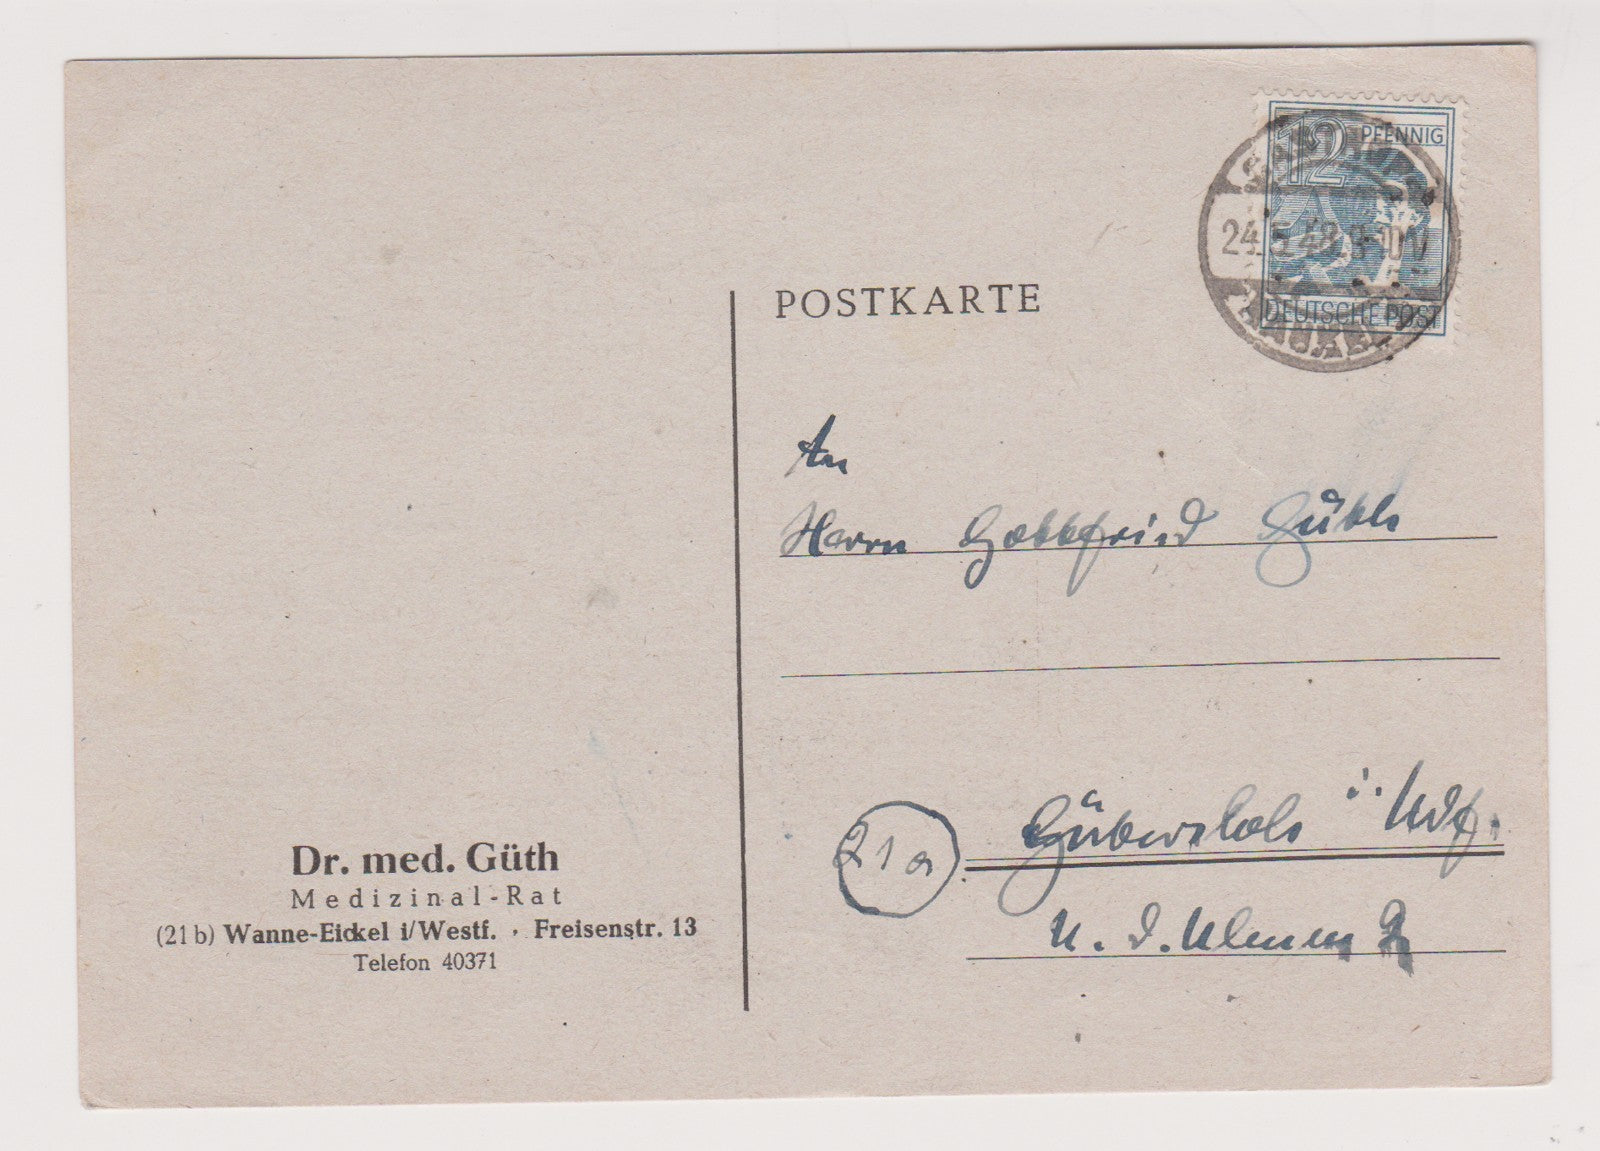 12 PFENNIG
24.5.48
DEUTSCHE POST
POSTKARTE
An
Herrn Gottfried Güth
21a
i. Westf.
U. d. Ulmen
Dr. med. Güth
Medizinal-Rat
(21b) Wanne-Eickel i/Westf. · Freisenstr. 13
Telefon 40371